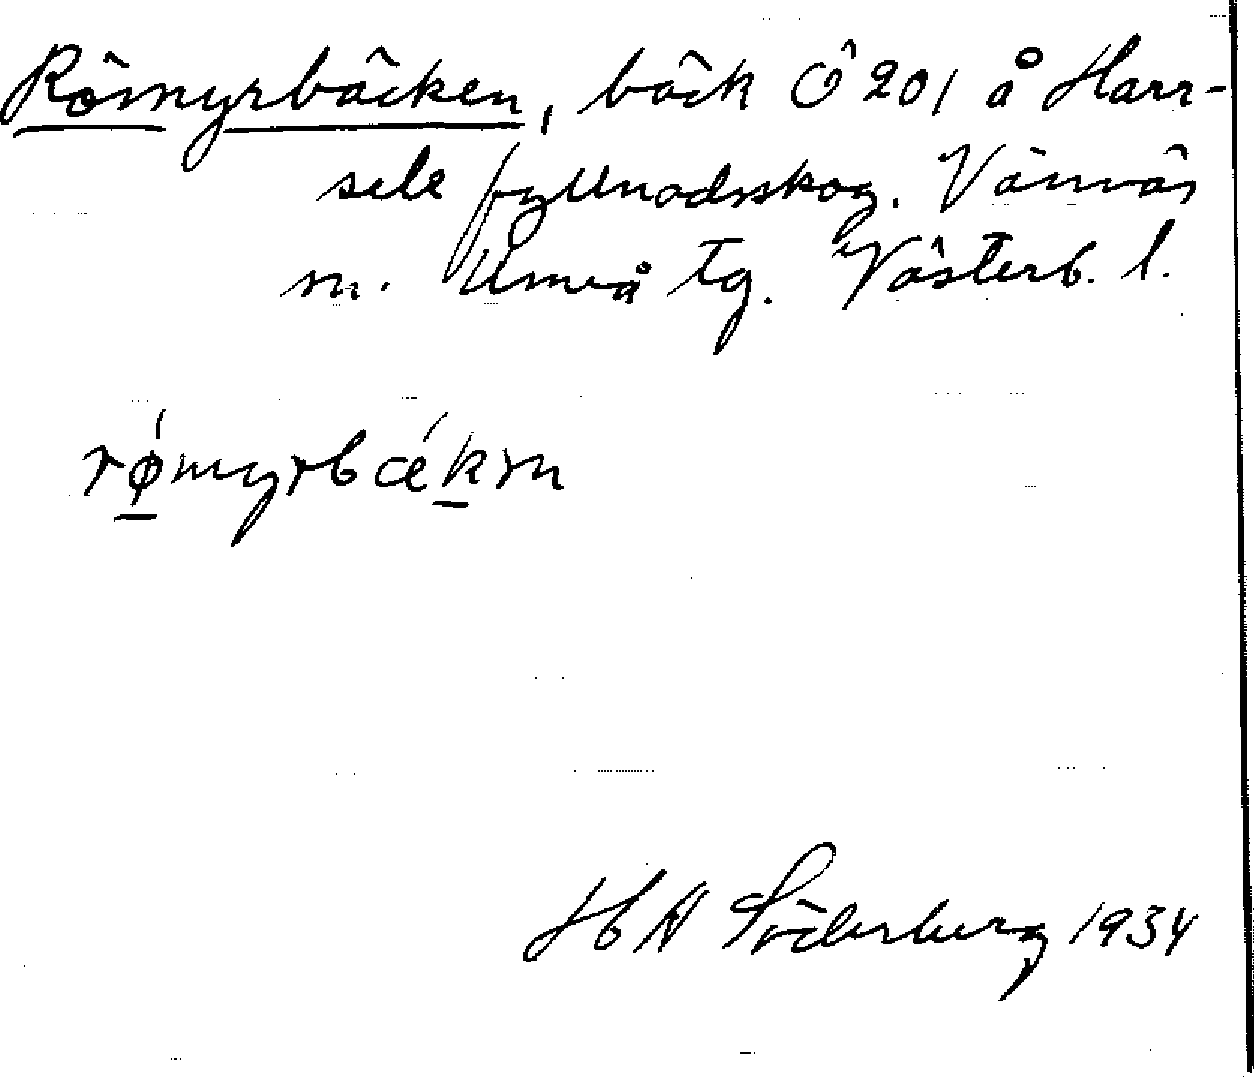 Römyrbäcken, bäck Ö 201 å Harr-
sele fyllnadsskog. Vännäs
m. Umeå tg. Västerb. l.
rǿmyrbǽkm
H A Söderberg 1934